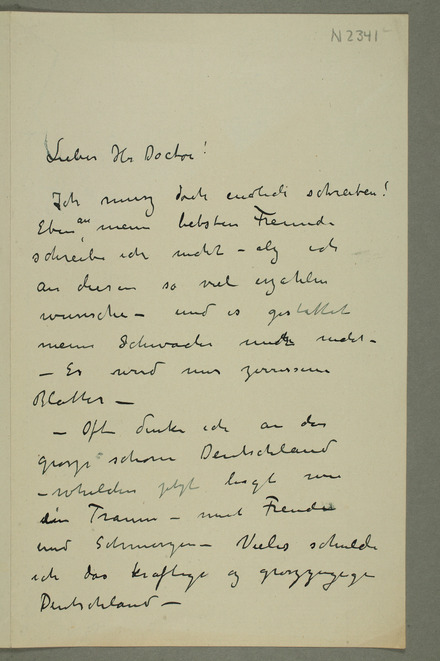 N 2341
Lieber Hr Doctor!
Ich musz doch endlich schreiben!
Eben an meine liebsten Freunde
schreibe ich nicht – als ich
an diesen so viel erzahlen
wunsche – und es gestattet
meine Schwache nicht –
– Es wird nur zerrissene
Blatter –
– Oft denke ich an das
grosze schone Deutschland
– jetzt liegt wie
ein Traum – mit Freude
und Schmerzen – Vieles schulde
ich das kraftige og groszzugige
Deutschland –